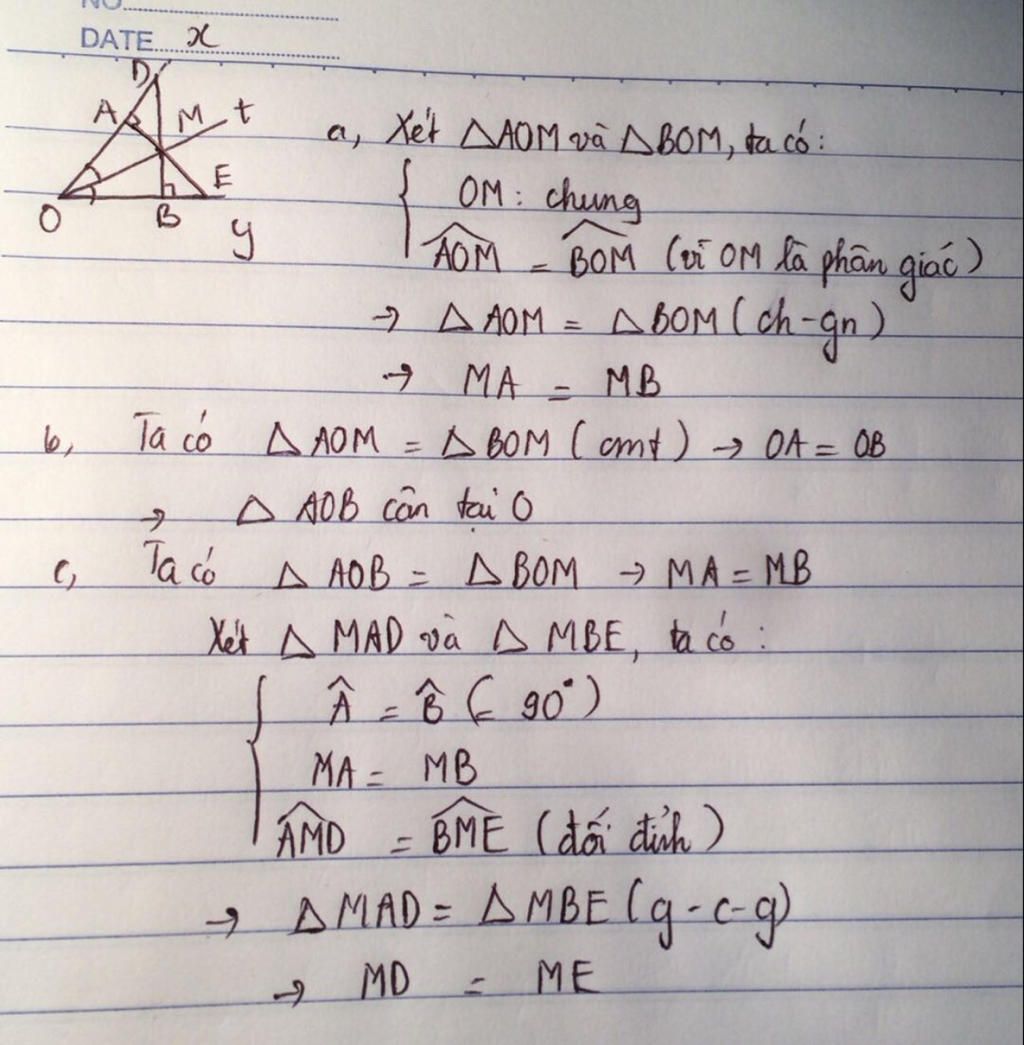 NO
DATE x
D
A M t
O B E
y
a, Xét △AOM và △BOM, ta có:
OM: chung
AOM = BOM (vì OM là phân giác)
→ △AOM = △BOM (ch-gn)
→ MA = MB
b, Ta có △AOM = △BOM (cmt) → OA = OB
→ △AOB cân tại O
c, Ta có △AOB = △BOM → MA = MB
Xét △MAD và △MBE, ta có:
Â = B̂ (= 90°)
MA = MB
AMD = BME (đối đỉnh)
→ △MAD = △MBE (g-c-g)
→ MD = ME